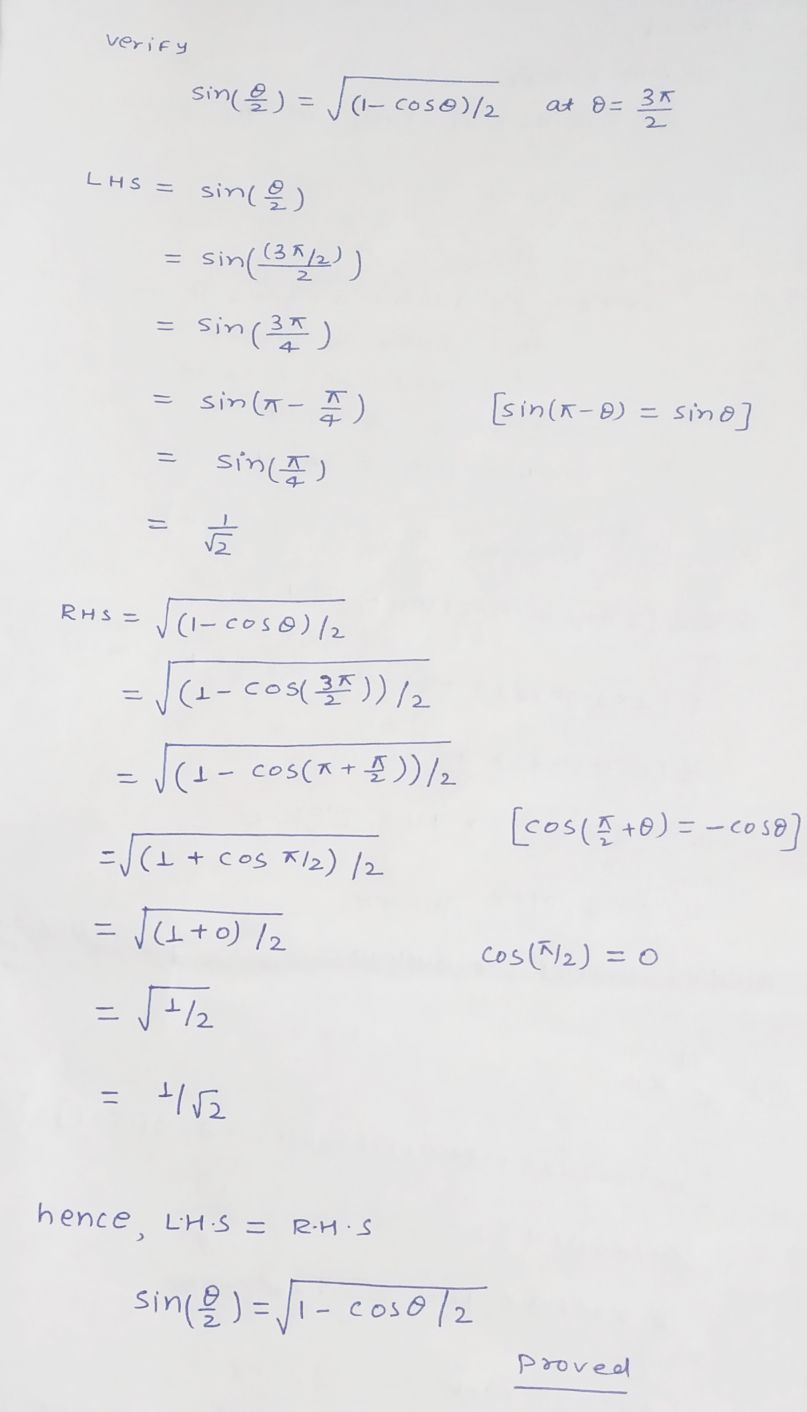 verify
sin(θ/2) = √((1- cosθ)/2) at θ = 3π/2
LHS = sin(θ/2)
= sin((3π/2)/2)
= sin(3π/4)
= sin(π - π/4) [sin(π-θ) = sinθ]
= sin(π/4)
= 1/√2
RHS = √((1-cosθ)/2)
= √((1-cos(3π/2))/2)
= √((1- cos(π+π/2))/2)
[cos(π/2+θ) = -cosθ]
= √((1+ cos π/2)/2)
= √((1+0)/2) cos(π/2) = 0
= √(1/2)
= 1/√2
hence, L.H.S = R.H.S
sin(θ/2) = √(1- cosθ/2)
Proved